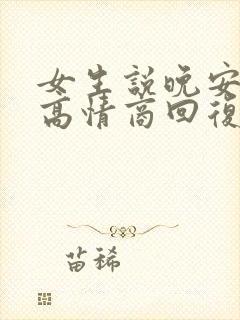 女生説晚安
高情商回復
苗稀